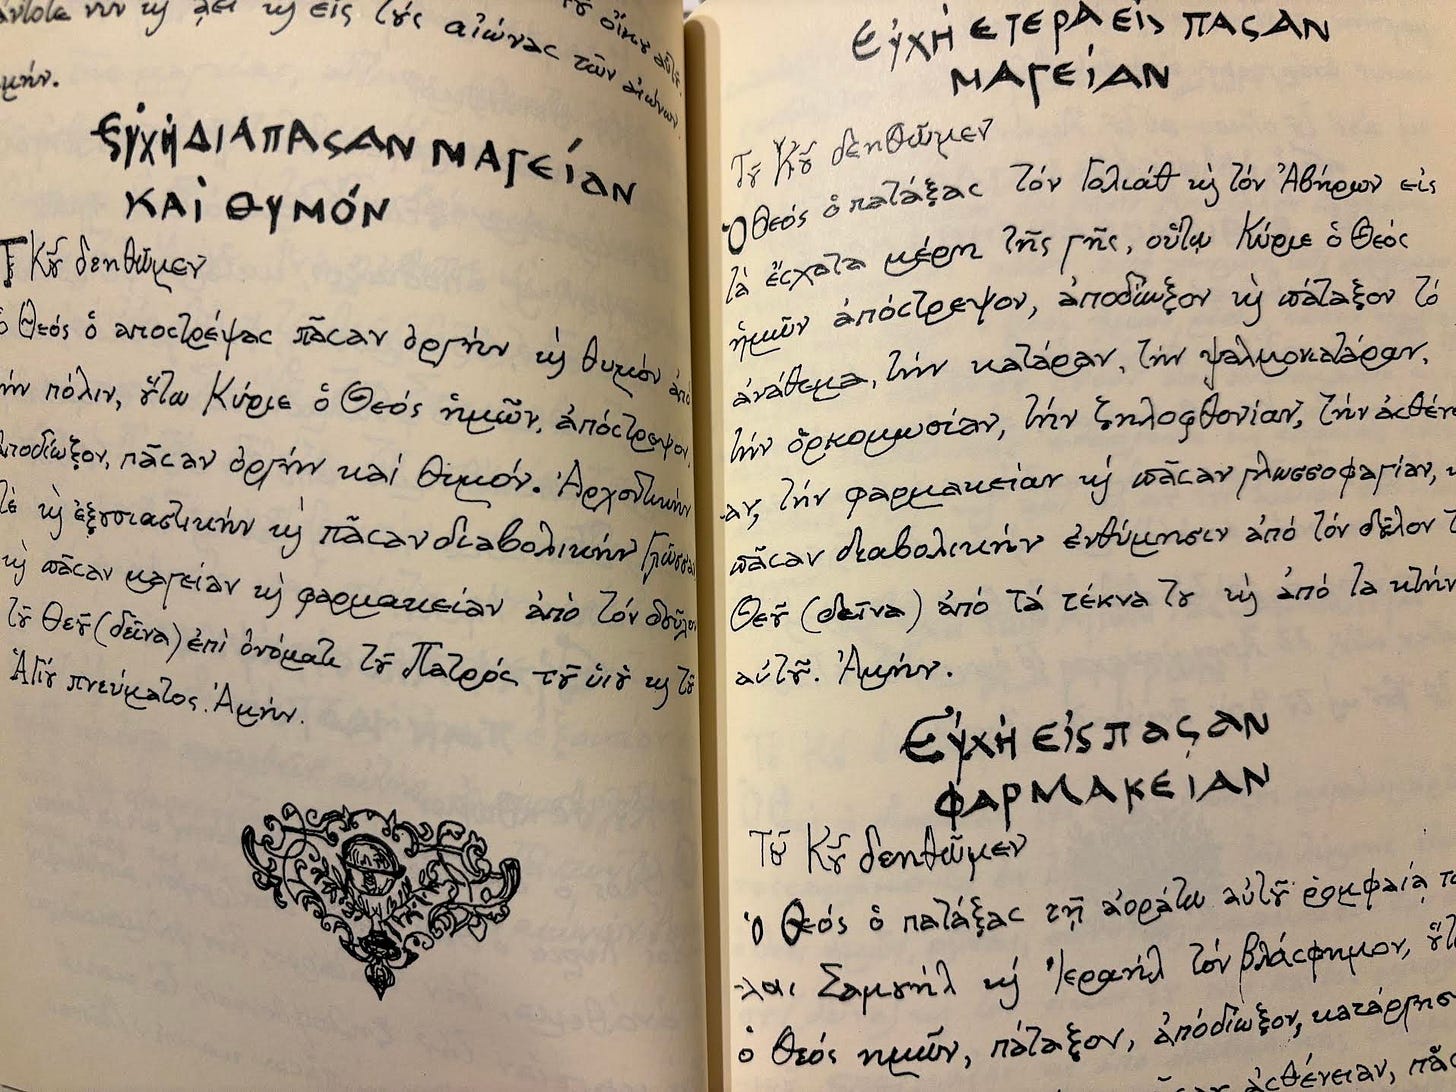 νῦν κ̀ ἀεὶ κ̀ εἰς τούς αἰώνας τῶν αἰώνων
ΕΥ̓ΧῊ ΔΙΑ ΠΑΣΑΝ ΜΑΓΕΊΑΝ
ΚΑῚ ΘΥΜΌΝ
Τ Κȣ͂ δεηθῶμεν
ὁ Θεός ὁ αποστρέψας πᾶσαν ὀργήν κ̀ θυμόν ἀπό
πόλιν, ȣ̔́τω Κύριε ὁ Θεός ἡμῶν, ἀπόστρεψον,
ἀποδίωξον, πᾶσαν ὀργήν καί θυμόν. Ἀρχοντικήν
τὲ κ̀ ἐξȣσιαστικήν κ̀ πᾶσαν διαβολικήν Γλῶσσαν
κ̀ πᾶσαν μαγείαν κ̀ φαρμακείαν ἀπὸ τόν δοῦλον
τȣ͂ Θεȣ͂ (δεῖνα) ἐπὶ ὀνόματι τȣ͂ Πατρός τȣ͂ ὑιȣ͂ κ̀ τȣ͂
Ἁγίȣ πνεύματος. Ἀμήν.
ΕΥ̓ΧῊ ΕΤΕΡΑ ΕΙΣ ΠΑΣΑΝ
ΜΑΓΕΊΑΝ
Τȣ͂ Κȣ͂ δεηθῶμεν
Ὁ Θεός ὁ πατάξας τόν Γολιάθ κ̀ τόν Ἀβήρων εἰς
τὰ ἔσχατα μέρη τῆς γῆς, οὕτω Κύριε ὁ Θεός
ἡμῶν ἀπόστρεψον, ἀποδίωξον κ̀ πάταξον τό
ἀνάθεμα, τήν κατάραν, τήν ψαλμοκατάραν,
τήν ὁρκομωσίαν, τήν ζηλοφθονίαν, τήν ἀσθένει
αν, τήν φαρμακείαν κ̀ πᾶσαν γλωσσοφαγίαν,
πᾶσαν διαβολικήν ἐνθύμησιν ἀπό τόν δȣ͂λον
Θεȣ͂ (δεῖνα) ἀπό τά τέκνα τȣ κ̀ ἀπό τα κτήνη
αὐτȣ͂. Ἀμήν.
ΕΥ̓ΧῊ ΕἸΣ ΠΑΣΑΝ
ΦΑΡΜΑΚΕΙΑΝ
Τȣ͂ Κȣ͂ δεηθῶμεν
ὁ Θεός ὁ πατάξας τῇ ἀοράτω αὐτȣ͂ ῥομφαίᾳ
Σαμȣήλ κ̀ τόν βλάσφημον,
ὁ Θεός ημῶν, πάταξον, ἀπόδίωξον, κατάργησ
ἀσθένειαν,